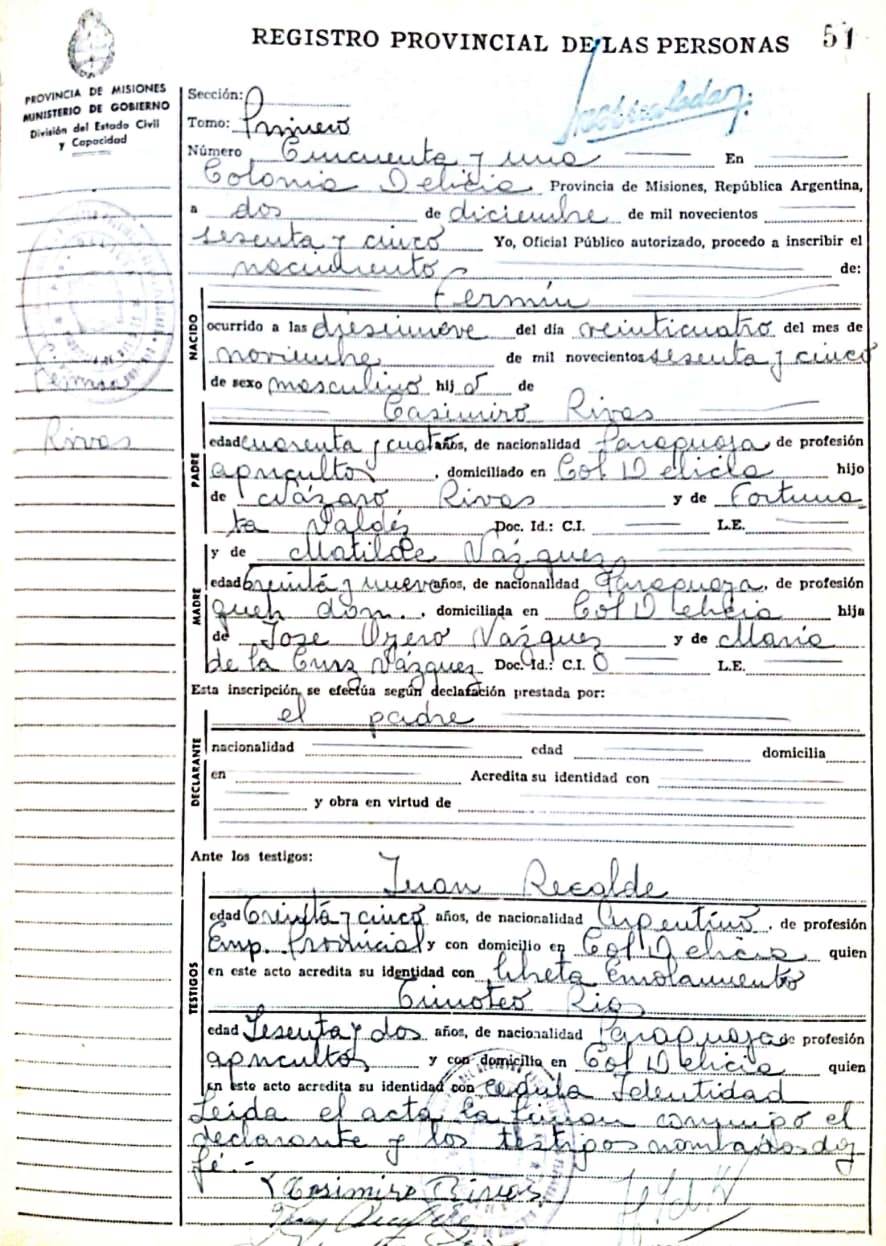 REGISTRO PROVINCIAL DE LAS PERSONAS 51
PROVINCIA DE MISIONES
MINISTERIO DE GOBIERNO
División del Estado Civil
y Capacidad
Sección:
Tomo: Primero
Número Cincuenta y uno En
Colonia Delicia Provincia de Misiones, República Argentina,
a dos de diciembre de mil novecientos
sesenta y cinco Yo, Oficial Público autorizado, procedo a inscribir el
nacimiento de:
NACIDO
Fermín
ocurrido a las diesinueve del día veinticuatro del mes de
noviembre de mil novecientos sesenta y cinco
de sexo masculino hij o de
Fermin
Rivas
PADRE
Casimiro Rivas
edad cuarenta y cuatro años, de nacionalidad Paraguaya de profesión
agricultor, domiciliado en Col Delicia hijo
de Názaro Rivas y de Fortuna
ta Valdéz Doc. Id.: C.I. L.E.
MADRE
y de Matilde Vázquez
edad treinta y nueve años, de nacionalidad Paraguaya, de profesión
queh dom., domiciliada en Col Delicia hija
de Jose Vázquez y de María
de la Cruz Vázquez Doc. Id.: C.I. L.E.
Esta inscripción, se efectúa según declaración prestada por:
DECLARANTE
el padre
nacionalidad edad domicilia
en Acredita su identidad con
y obra en virtud de
Ante los testigos:
TESTIGOS
Juan Recalde
edad treinta y cinco años, de nacionalidad Argentino, de profesión
Emp. Provincial y con domicilio en Col Delicia quien
en este acto acredita su identidad con libreta Enrolamiento
Timoteo Rios
edad Sesenta y dos años, de nacionalidad Paraguaya de profesión
agricultor y con domicilio en Col Delicia quien
en este acto acredita su identidad con cedula Identidad
Leida el acta la firman conmigo el
declarante y los testigos nombrados doy
fé.-
Casimiro Rivas